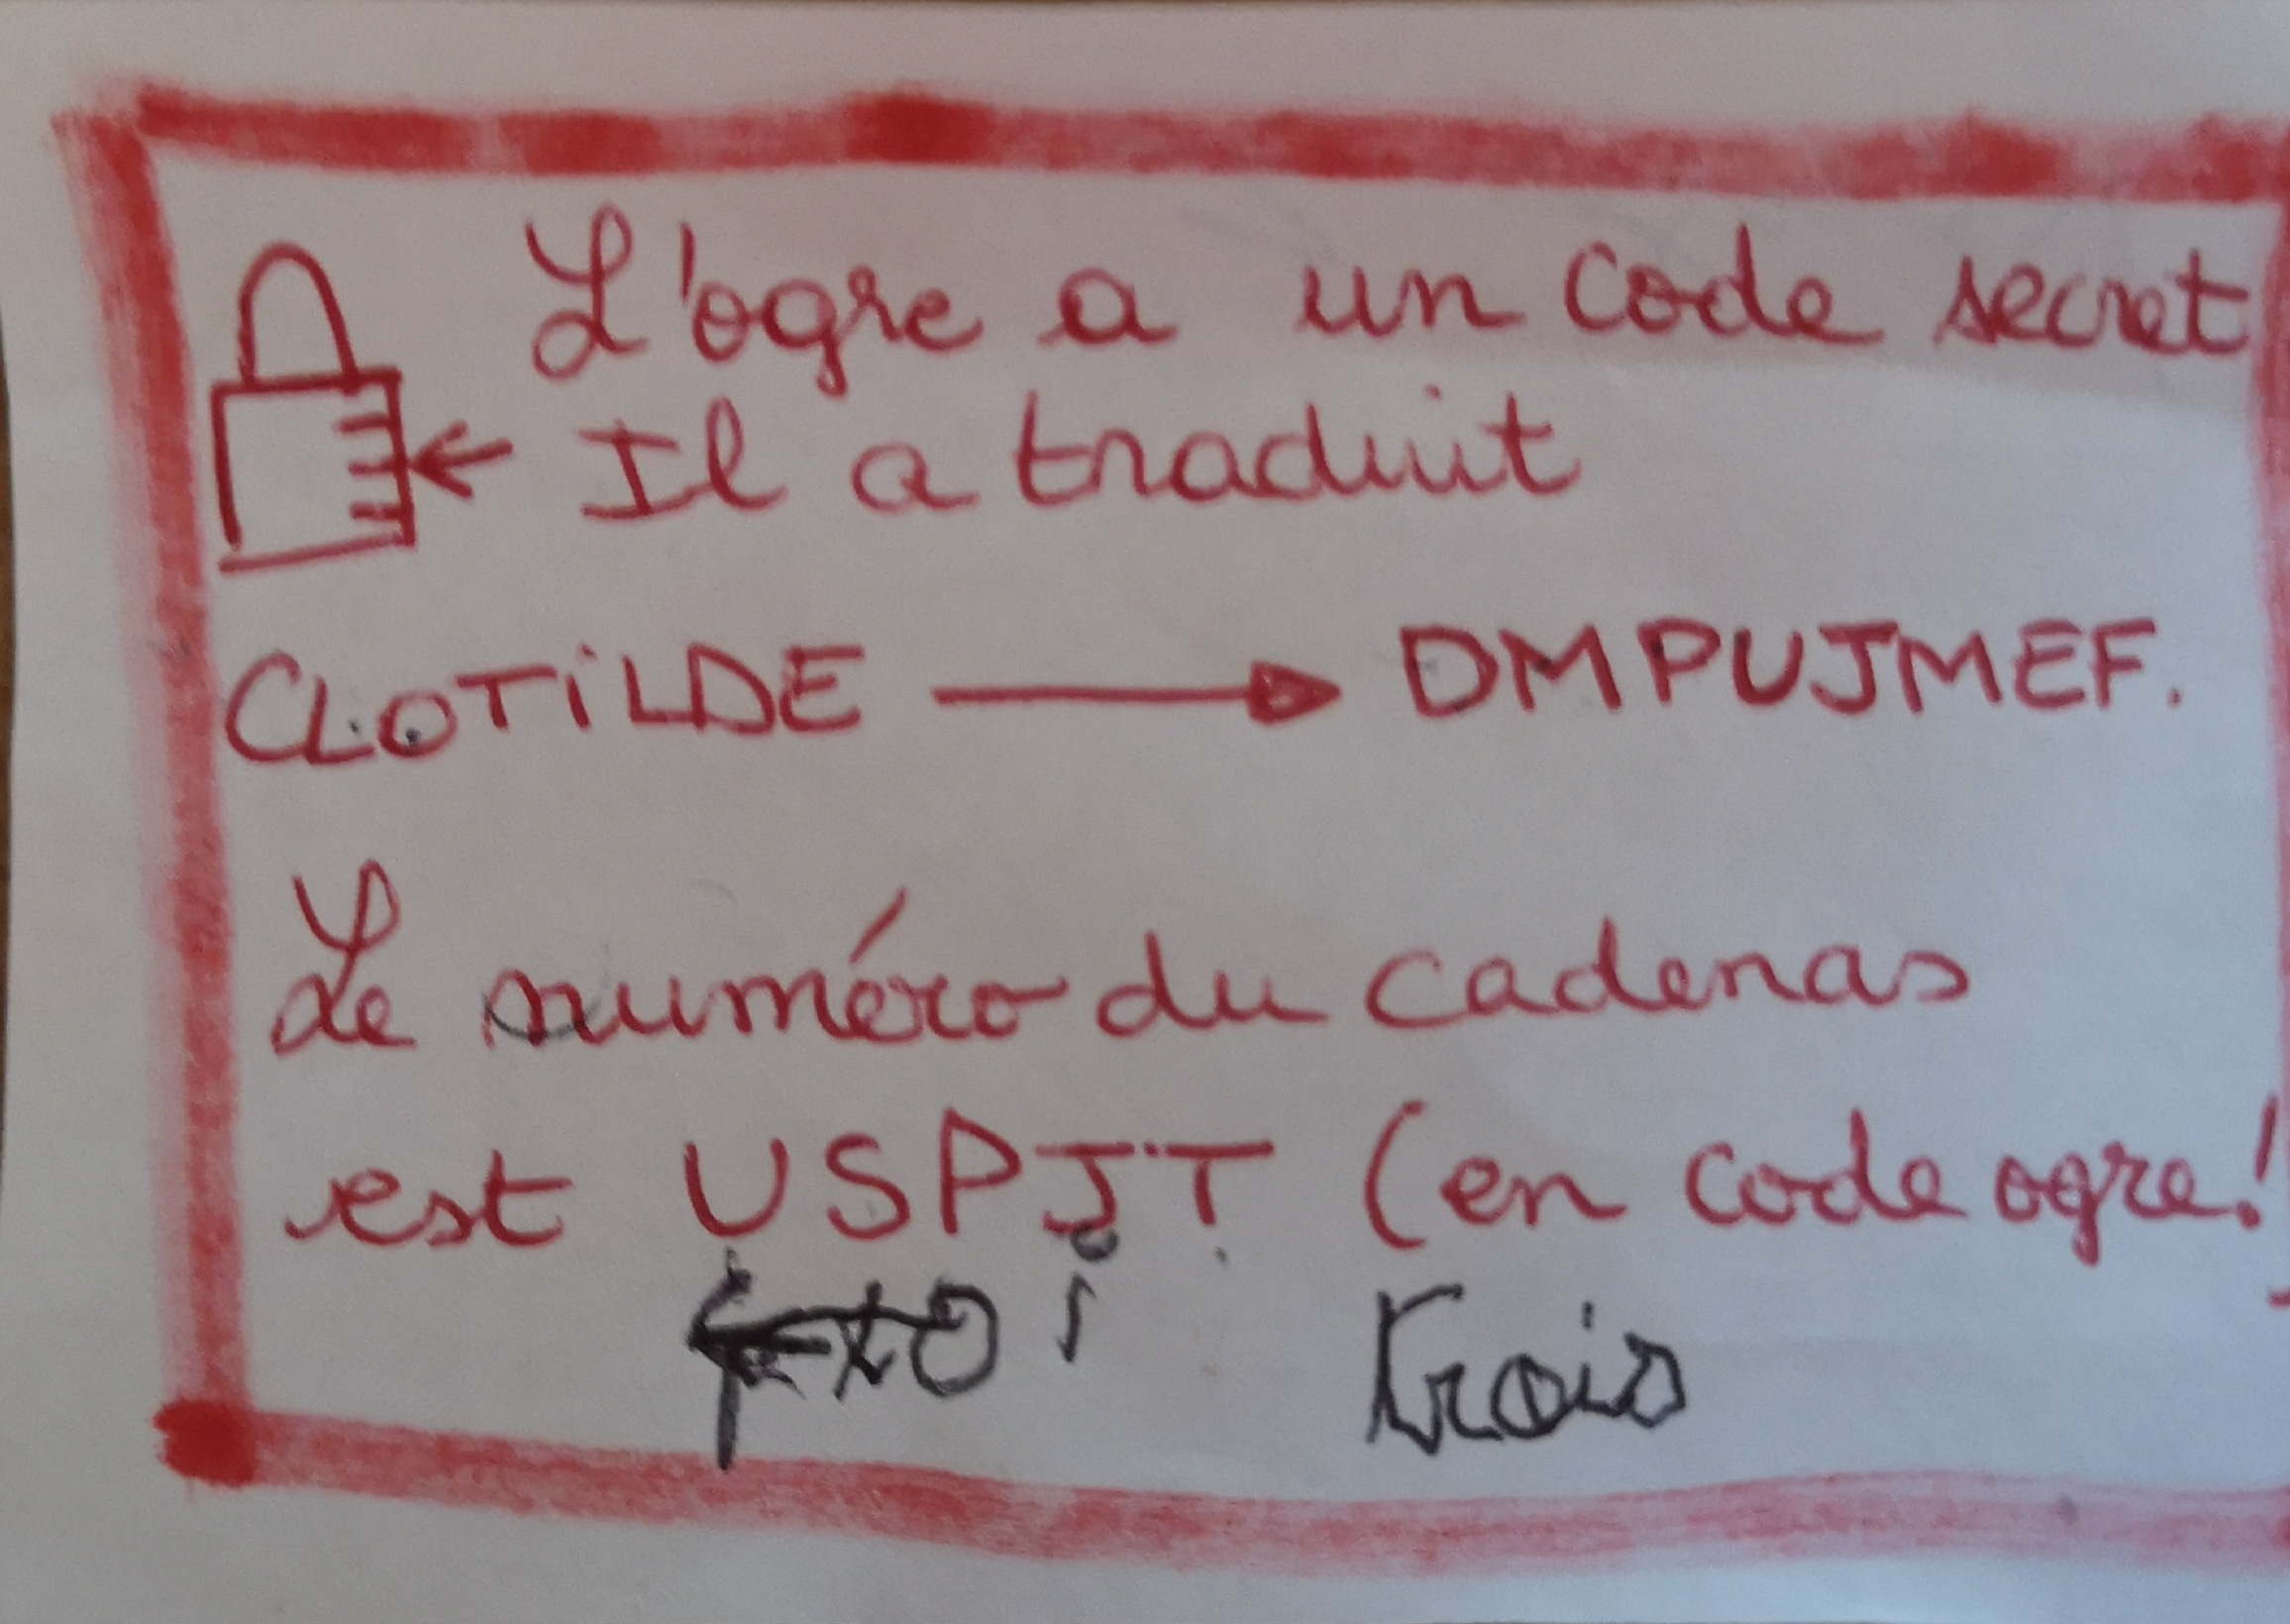 L'ogre a un code secret
Il a traduit
CLOTILDE → DMPUJMEF.
Le numéro du cadenas
est USPJT (en code ogre!
trois